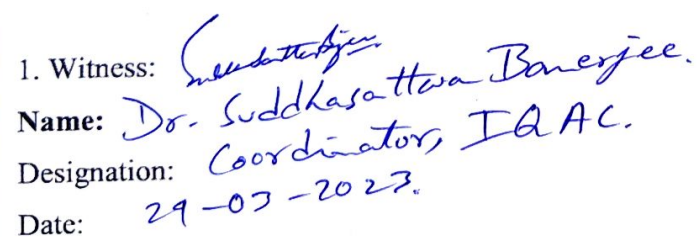 1. Witness:
Name: Dr. Suddhasattwa Banerjee.
Designation: Coordinator, IQAC.
Date: 29-03-2023.